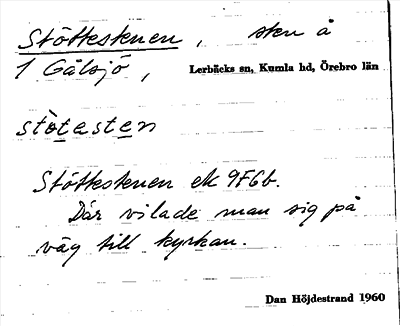 Stöttestenen, sten å
1 Gålsjö, Lerbäcks sn, Kumla hd, Örebro län
stòtasten
Stöttestenen ek 9F6b.
Där vilade man sig på
väg till kyrkan.
Dan Höjdestrand 1960